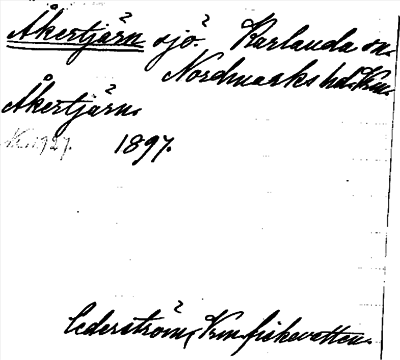 Åkertjärn sjö. Karlanda sn.
Nordmarks hd. Vrm.
Åkertjärn.
1897.
Cederström, Vrm. fiskevatten.